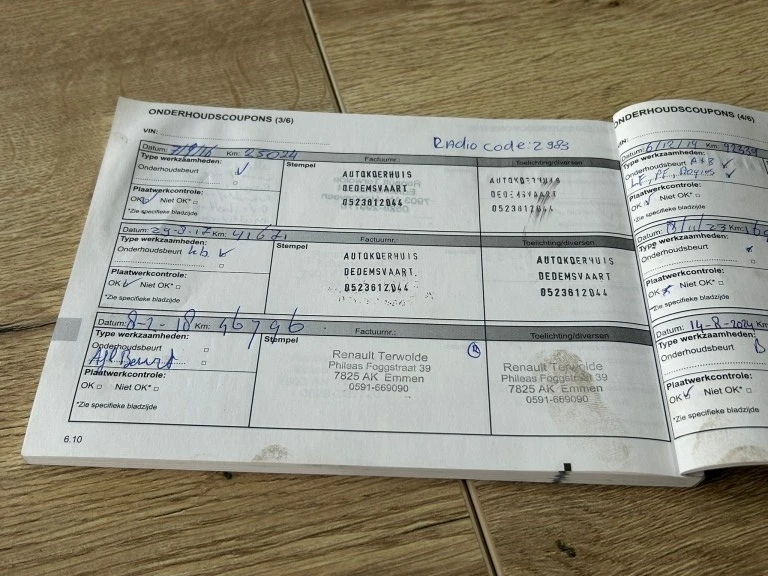 ONDERHOUDSCOUPONS (3/6)
VIN:
Radio code: 2983
Datum: Km: 25024 Factuurnr.: Toelichting/diversen
Type werkzaamheden:
Stempel
Onderhoudsbeurt
Plaatwerkcontrole:
OK Niet OK*
*Zie specifieke bladzijde
AUTOKOERHUIS
DEDEMSVAART
0523612044
AUTOKOERHUIS
DEDEMSVAART
0523612044
Datum: 29-8-17 Km: 41671 Factuurnr.: Toelichting/diversen
Type werkzaamheden:
Stempel
Onderhoudsbeurt
Plaatwerkcontrole:
OK Niet OK*
*Zie specifieke bladzijde
AUTOKOERHUIS
DEDEMSVAART.
0523612044
AUTOKOERHUIS
DEDEMSVAART
0523612044
Datum: 8-2-18 Km: 46796 Factuurnr.: Toelichting/diversen
Type werkzaamheden:
Stempel
Onderhoudsbeurt
Afl Beurt
Plaatwerkcontrole:
OK Niet OK*
*Zie specifieke bladzijde
Renault Terwolde
Phileas Foggstraat 39
7825 AK Emmen
0591-669090
Renault Terwolde
Phileas Foggstraat 39
7825 AK Emmen
0591-669090
6.10
ONDERHOUDSCOUPONS (4/6)
VIN:
Datum: 6/12/19 Km:
Type werkzaamheden:
Onderhoudsbeurt A+B
Plaatwerkcontrole:
OK Niet OK*
*Zie specifieke bladzijde
Datum: 13/11/23 Km:
Type werkzaamheden:
Onderhoudsbeurt
Plaatwerkcontrole:
OK Niet OK*
*Zie specifieke bladzijde
Datum: 14-8-2024 Km:
Type werkzaamheden:
Onderhoudsbeurt B
Plaatwerkcontrole:
OK Niet OK*
*Zie specifieke bladzijde